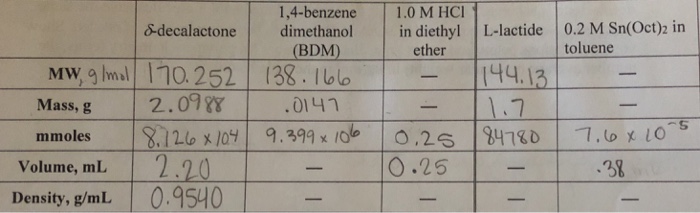 δ-decalactone 1,4-benzene dimethanol (BDM) 1.0 M HCl in diethyl ether L-lactide 0.2 M Sn(Oct)2 in toluene
MW, g/mol 170.252 138.166 — 144.13 —
Mass, g 2.0988 .0147 — 1.7 —
mmoles 8.126 x 104 9.399 x 106 0.25 84780 7.6 x 10-5
Volume, mL 2.20 — 0.25 — .38
Density, g/mL 0.9540 — — — —